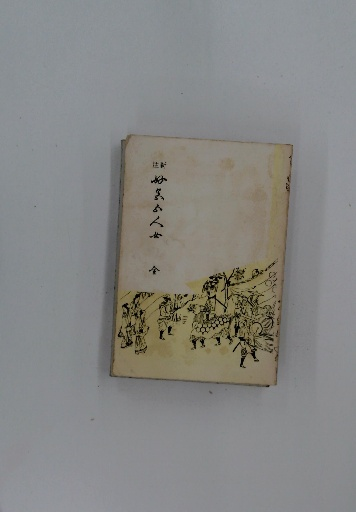 新註
好色五人女
全